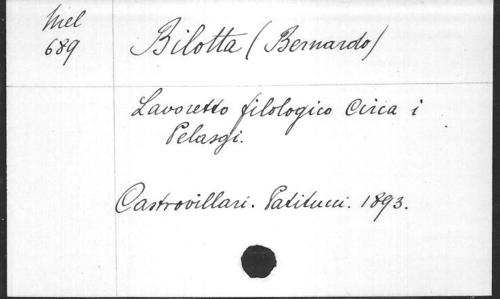 Mel
689
Bilotta (Bernardo)
Lavoretto filologico circa i
Pelasgi.
Castrovillari. Patitucci. 1893.